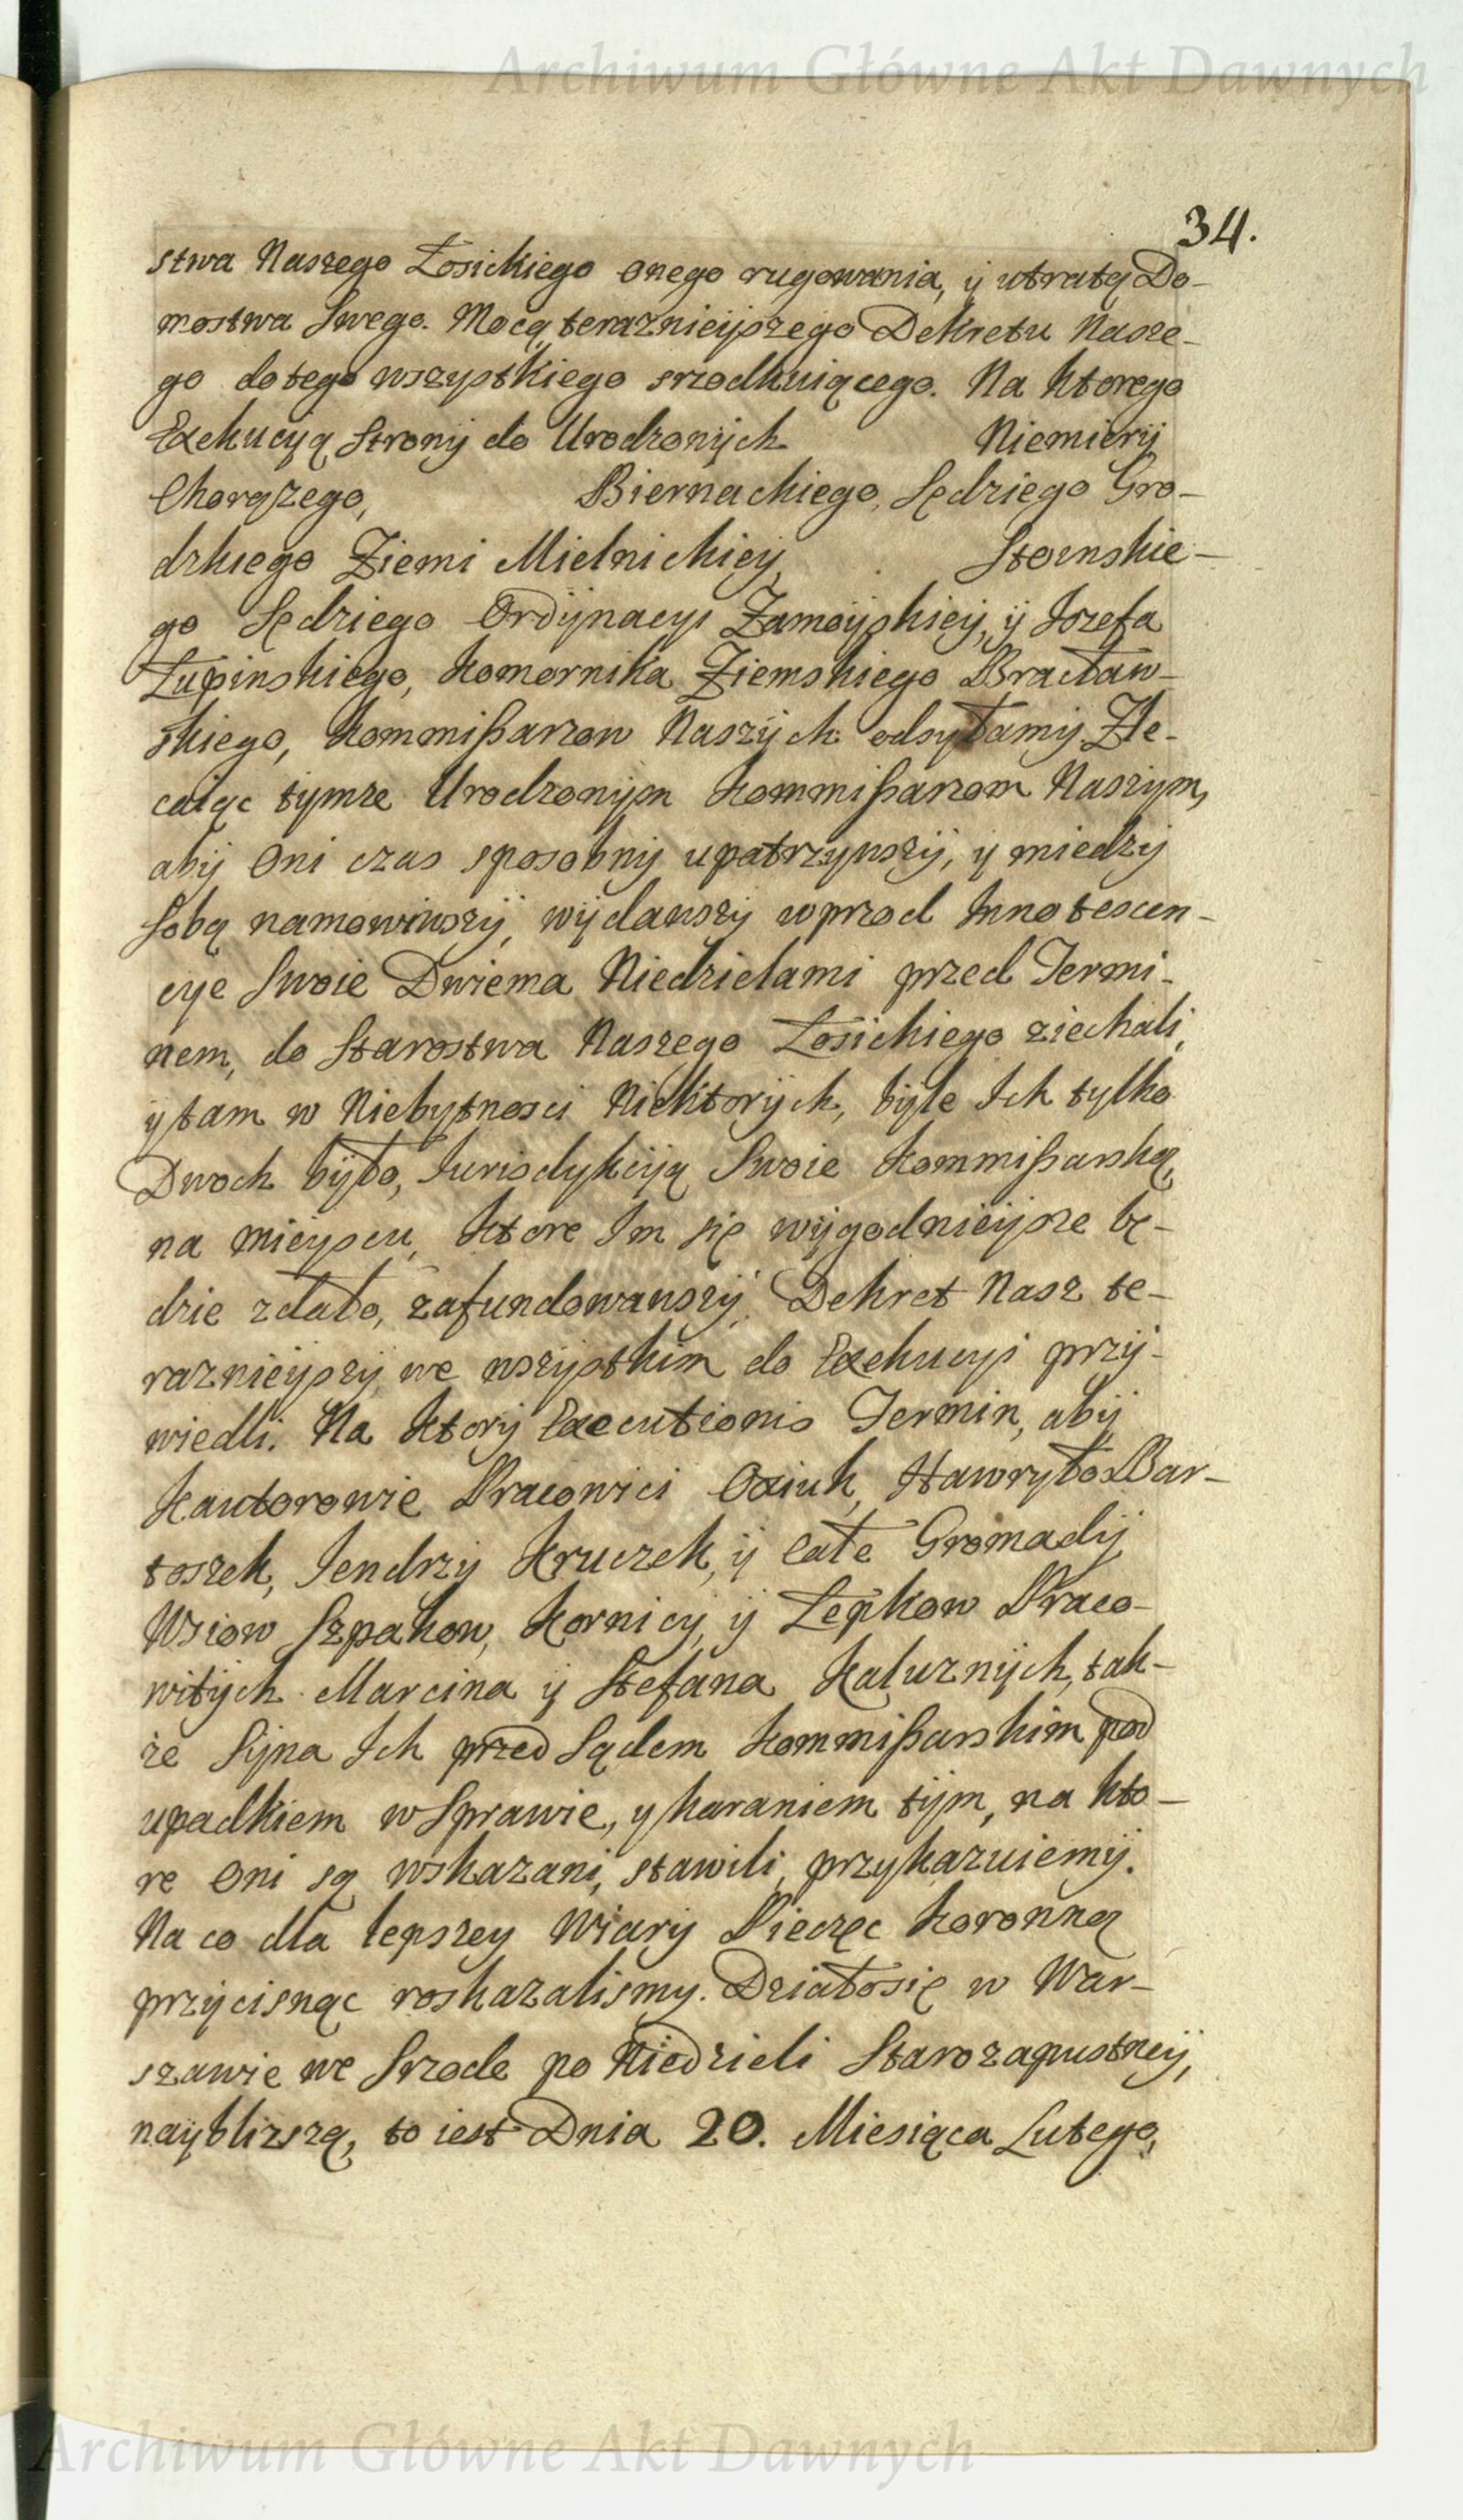 Archiwum Główne Akt Dawnych
34.
stwa Naszego Łosickiego onego rugowania, ÿ utratą Do-
mostwa Swego. Mocą teraznieÿszego Dekretu Nasze-
go do tego wszystkiego srzodkuiącego. Na ktorego
Exekucyą Stronÿ do Urodzonÿch Niemierÿ
Chorązego, Biernackiego, Sędziego Gro-
dzkiego Ziemi Mielnickieÿ, Stoinskie-
go Sędziego Ordÿnacyi Zamoÿskieÿ, ÿ Jozefa
Łupinskiego, Komornika Ziemskiego Bracław-
skiego, Kommißarzow Naszÿch odsyłamÿ. Zle-
caiąc tymze Urodzonÿm Kommißarzom Naszÿm,
abÿ Oni czas sposobnÿ upatrzÿwszÿ, ÿ miedzÿ
Sobą namowiwszÿ, wÿdawszÿ wprzod Innotescen-
cye Swoie Dwiema Niedzielami przed Termi-
nem, do Starostwa Naszego Łosickiego ziechali,
ÿ tam w Niebytnosci Niektorÿch, bÿle Ich tylko
Dwoch bÿło, Jurisdykcÿą Swoie Kommißarską,
na mieyscu, ktore Im się wÿgodnieÿsze bę-
dzie zdało, zafundowawszÿ, Dekret Nasz te-
raznieÿszÿ we wszÿstkim do Exekucyi przÿ-
wiedli. Na ktorÿ Executionis Termin, abÿ
Kawtorowie Pracowici Oxiuk, Hawryło Bar-
toszek, Jendrzÿ Kruczek, ÿ całe Gromadÿ
Wsiow Szpakow, Kornicy, ÿ Łepkow Praco-
witÿch Marcina ÿ Stefana Kaluznÿch, tak-
ze Sÿna Ich przed Sądem Kommißarskim pod
upadkiem w Sprawie, y karaniem tÿm, na kto-
re Oni są wskazani, stawili, przykazuiemÿ.
Na co dla lepszey Wiarÿ Pieczęc Koronną
przÿcisnąc roskazalismy. Działo się w War-
szawie we Srzode po Niedzieli Starozapustneÿ,
naÿblizszą, to iest Dnia 20. Miesiąca Lutego,
Archiwum Główne Akt Dawnych